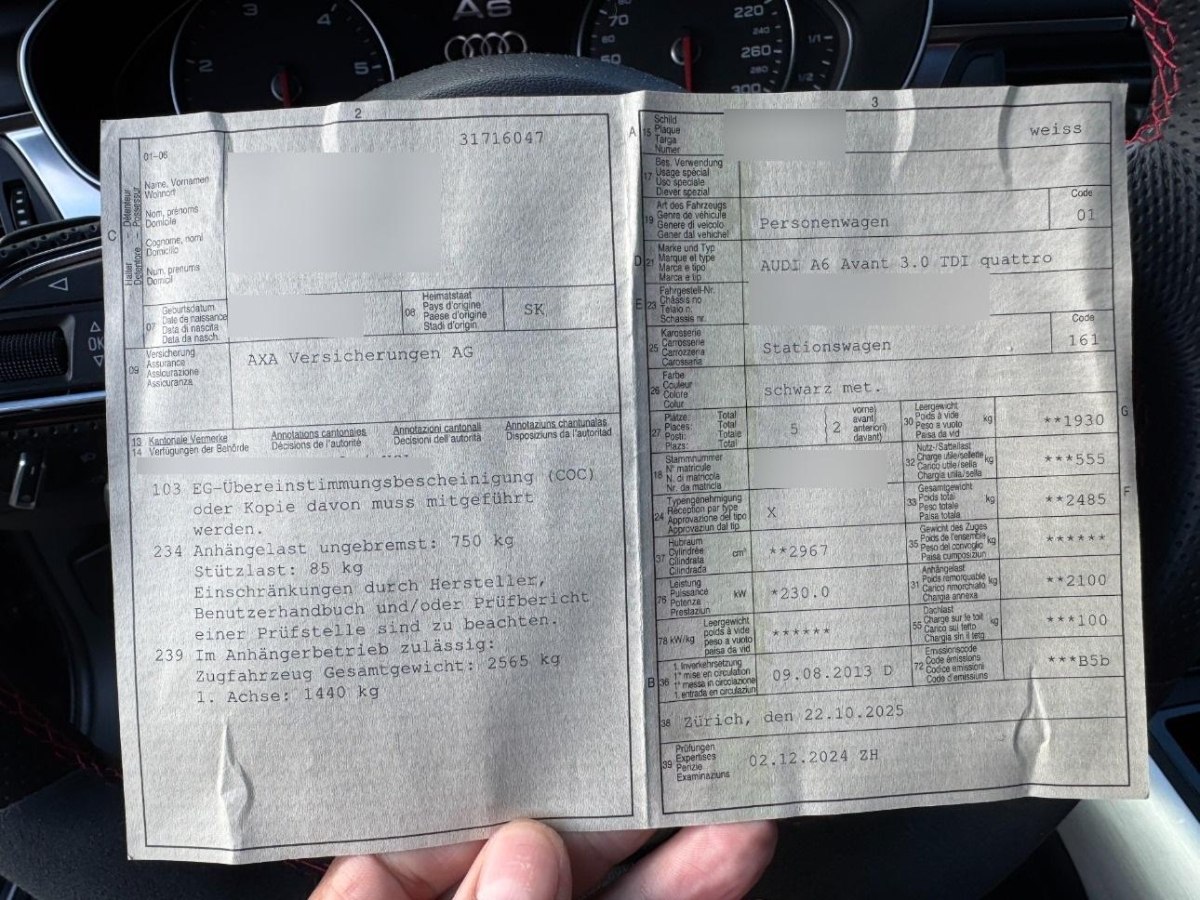 A6
2
3
4
5
50
60
70
220
240
260
280
300
1/2
1/1
OK
2
31716047
C
Halter
Détenteur
Detentore
Possessur
01-06
Name, Vornamen
Wohnort
Nom, prénoms
Domicile
Cognome, nomi
Domicilio
Num, prenums
Domicil
07
Geburtsdatum
Date de naissance
Data di nascita
Data da nasch.
08
Heimatstaat
Pays d'origine
Paese d'origine
Stadi d'origin
SK
09
Versicherung
Assurance
Assicurazione
Assicuranza
AXA Versicherungen AG
13 Kantonale Vermerke
14 Verfügungen der Behörde
Annotations cantonales
Décisions de l'autorité
Annotazioni cantonali
Decisioni dell'autorità
Annotaziuns chantunalas
Disposiziuns da l'autoritad
103 EG-Übereinstimmungsbescheinigung (COC)
oder Kopie davon muss mitgeführt
werden.
234 Anhängelast ungebremst: 750 kg
Stützlast: 85 kg
Einschränkungen durch Hersteller,
Benutzerhandbuch und/oder Prüfbericht
einer Prüfstelle sind zu beachten.
239 Im Anhängerbetrieb zulässig:
Zugfahrzeug Gesamtgewicht: 2565 kg
1. Achse: 1440 kg
3
A
15
Schild
Plaque
Targa
Numer
weiss
17
Bes. Verwendung
Usage spécial
Uso speciale
Diever spezial
19
Art des Fahrzeugs
Genre de véhicule
Genere di veicolo
Gener dal vehichel
Personenwagen
Code
01
D
21
Marke und Typ
Marque et type
Marca e tipo
Marca e tip
AUDI A6 Avant 3.0 TDI quattro
E
23
Fahrgestell-Nr.
Châssis no
Telaio n.
Schassis nr.
25
Karosserie
Carrosserie
Carrozzeria
Carossaria
Stationswagen
Code
161
26
Farbe
Couleur
Colore
Colur
schwarz met.
27
Plätze: Total
Places: Total
Posti: Totale
Plazs: Total
5
2
vorne)
avant)
anteriori)
davant)
30
Leergewicht
Poids à vide
Peso a vuoto
Paisa da vid
kg
**1930
G
18
Stammnummer
N° matricule
N. di matricola
Nr. da matricla
32
Nutz-/Sattellast
Charge utile/sellette
Carico utile/sella
Chargia utila/sella
kg
***555
24
Typengenehmigung
Réception par type
Approvazione del tipo
Approvaziun dal tip
X
33
Gesamtgewicht
Poids total
Peso totale
Paisa totala
kg
**2485
F
37
Hubraum
Cylindrée
Cilindrata
Cilindrada
cm³
**2967
35
Gewicht des Zuges
Poids de l'ensemble
Peso del convoglio
Paisa cumposiziun
kg
******
76
Leistung
Puissance
Potenza
Prestaziun
kW
*230.0
31
Anhängelast
Poids remorquable
Carico rimorchiato
Chargia annexa
kg
**2100
78 kW/kg
Leergewicht
poids à vide
peso a vuoto
paisa da vid
******
55
Dachlast
Charge sur le toit
Carico sul tetto
Chargia sin il tetg
kg
***100
B
36
1. Inverkehrsetzung
1re mise en circulation
1a messa in circolazione
1. entrada en circulaziun
09.08.2013 D
72
Emissionscode
Code émissions
Codice emissioni
Code d'emissiuns
***B5b
38 Zürich, den 22.10.2025
39
Prüfungen
Expertises
Perizie
Examinaziuns
02.12.2024 ZH